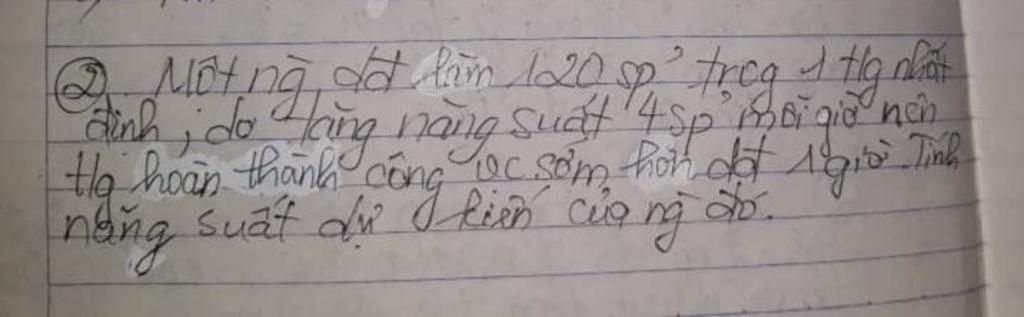 ② Một ng, dđ làm 120 sp' trog 1 tlg nhất
định, do tăng năng suất 4sp' mỗi giờ nên
tlg hoàn thành công vc sớm hơn dđ 1 giờ. Tính
năng suất dự kiến của ng đó.